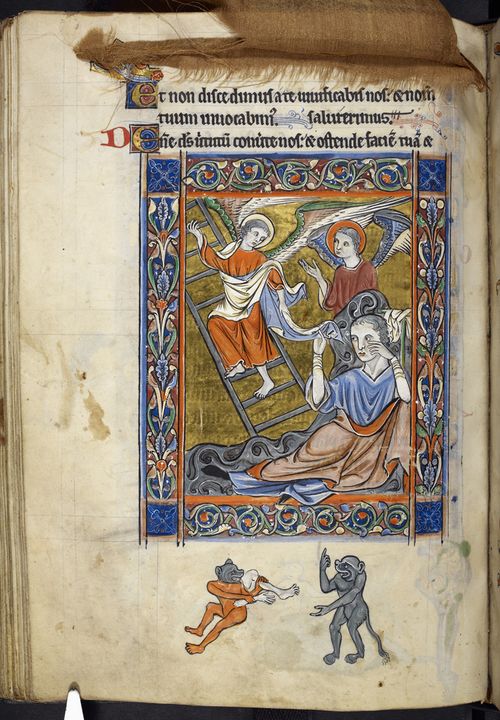 Et non discedimus a te uiuificabis nos: & nom
tuum inuocabim'. salui erimus.
Dñe ds uirtutū conuerte nos: & ostende faciē tuā &